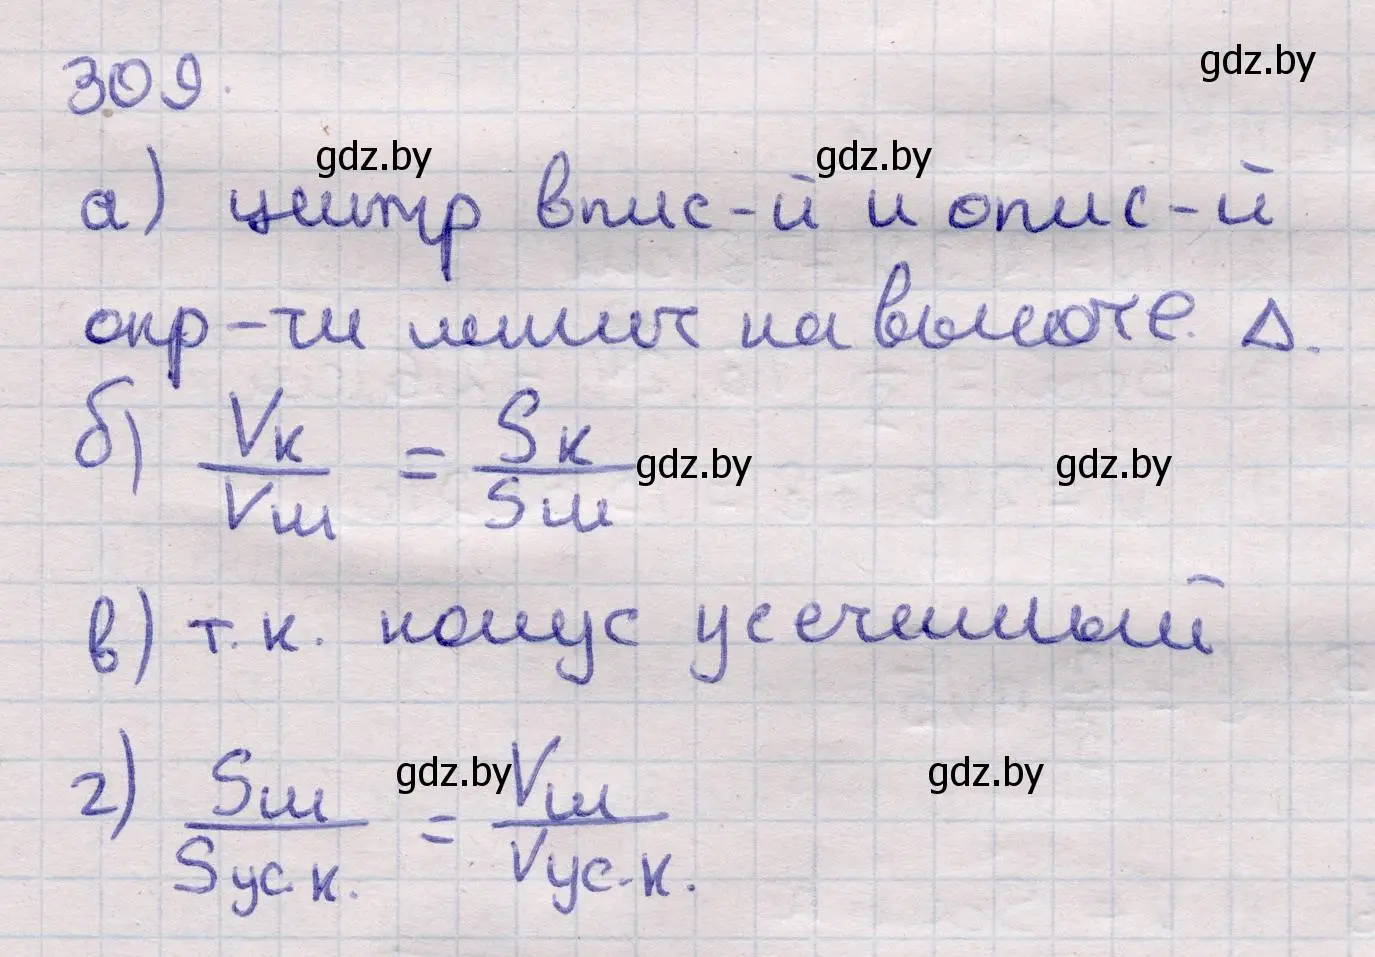 309.
gdz.by
gdz.by gdz.by
а) центр впис-й и опис-й
окр-ти лежит на высоте Δ.
б) Vк / Vш = Sк / Sш
gdz.by gdz.by
в) т.к. конус усеченный
gdz.by gdz.by
г) Sш / Sус.к. = Vш / Vус.к.